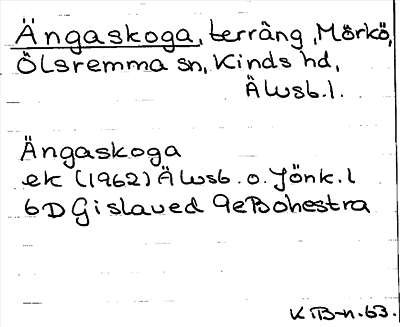 Ängaskoga, terräng, Mörkö,
Ölsremma sn, Kinds hd,
Älvsb.l.
Ängaskoga
ek (1962) Älvsb. o. Jönk. l
6D Gislaved 9e Bohestra
KB-n.63.